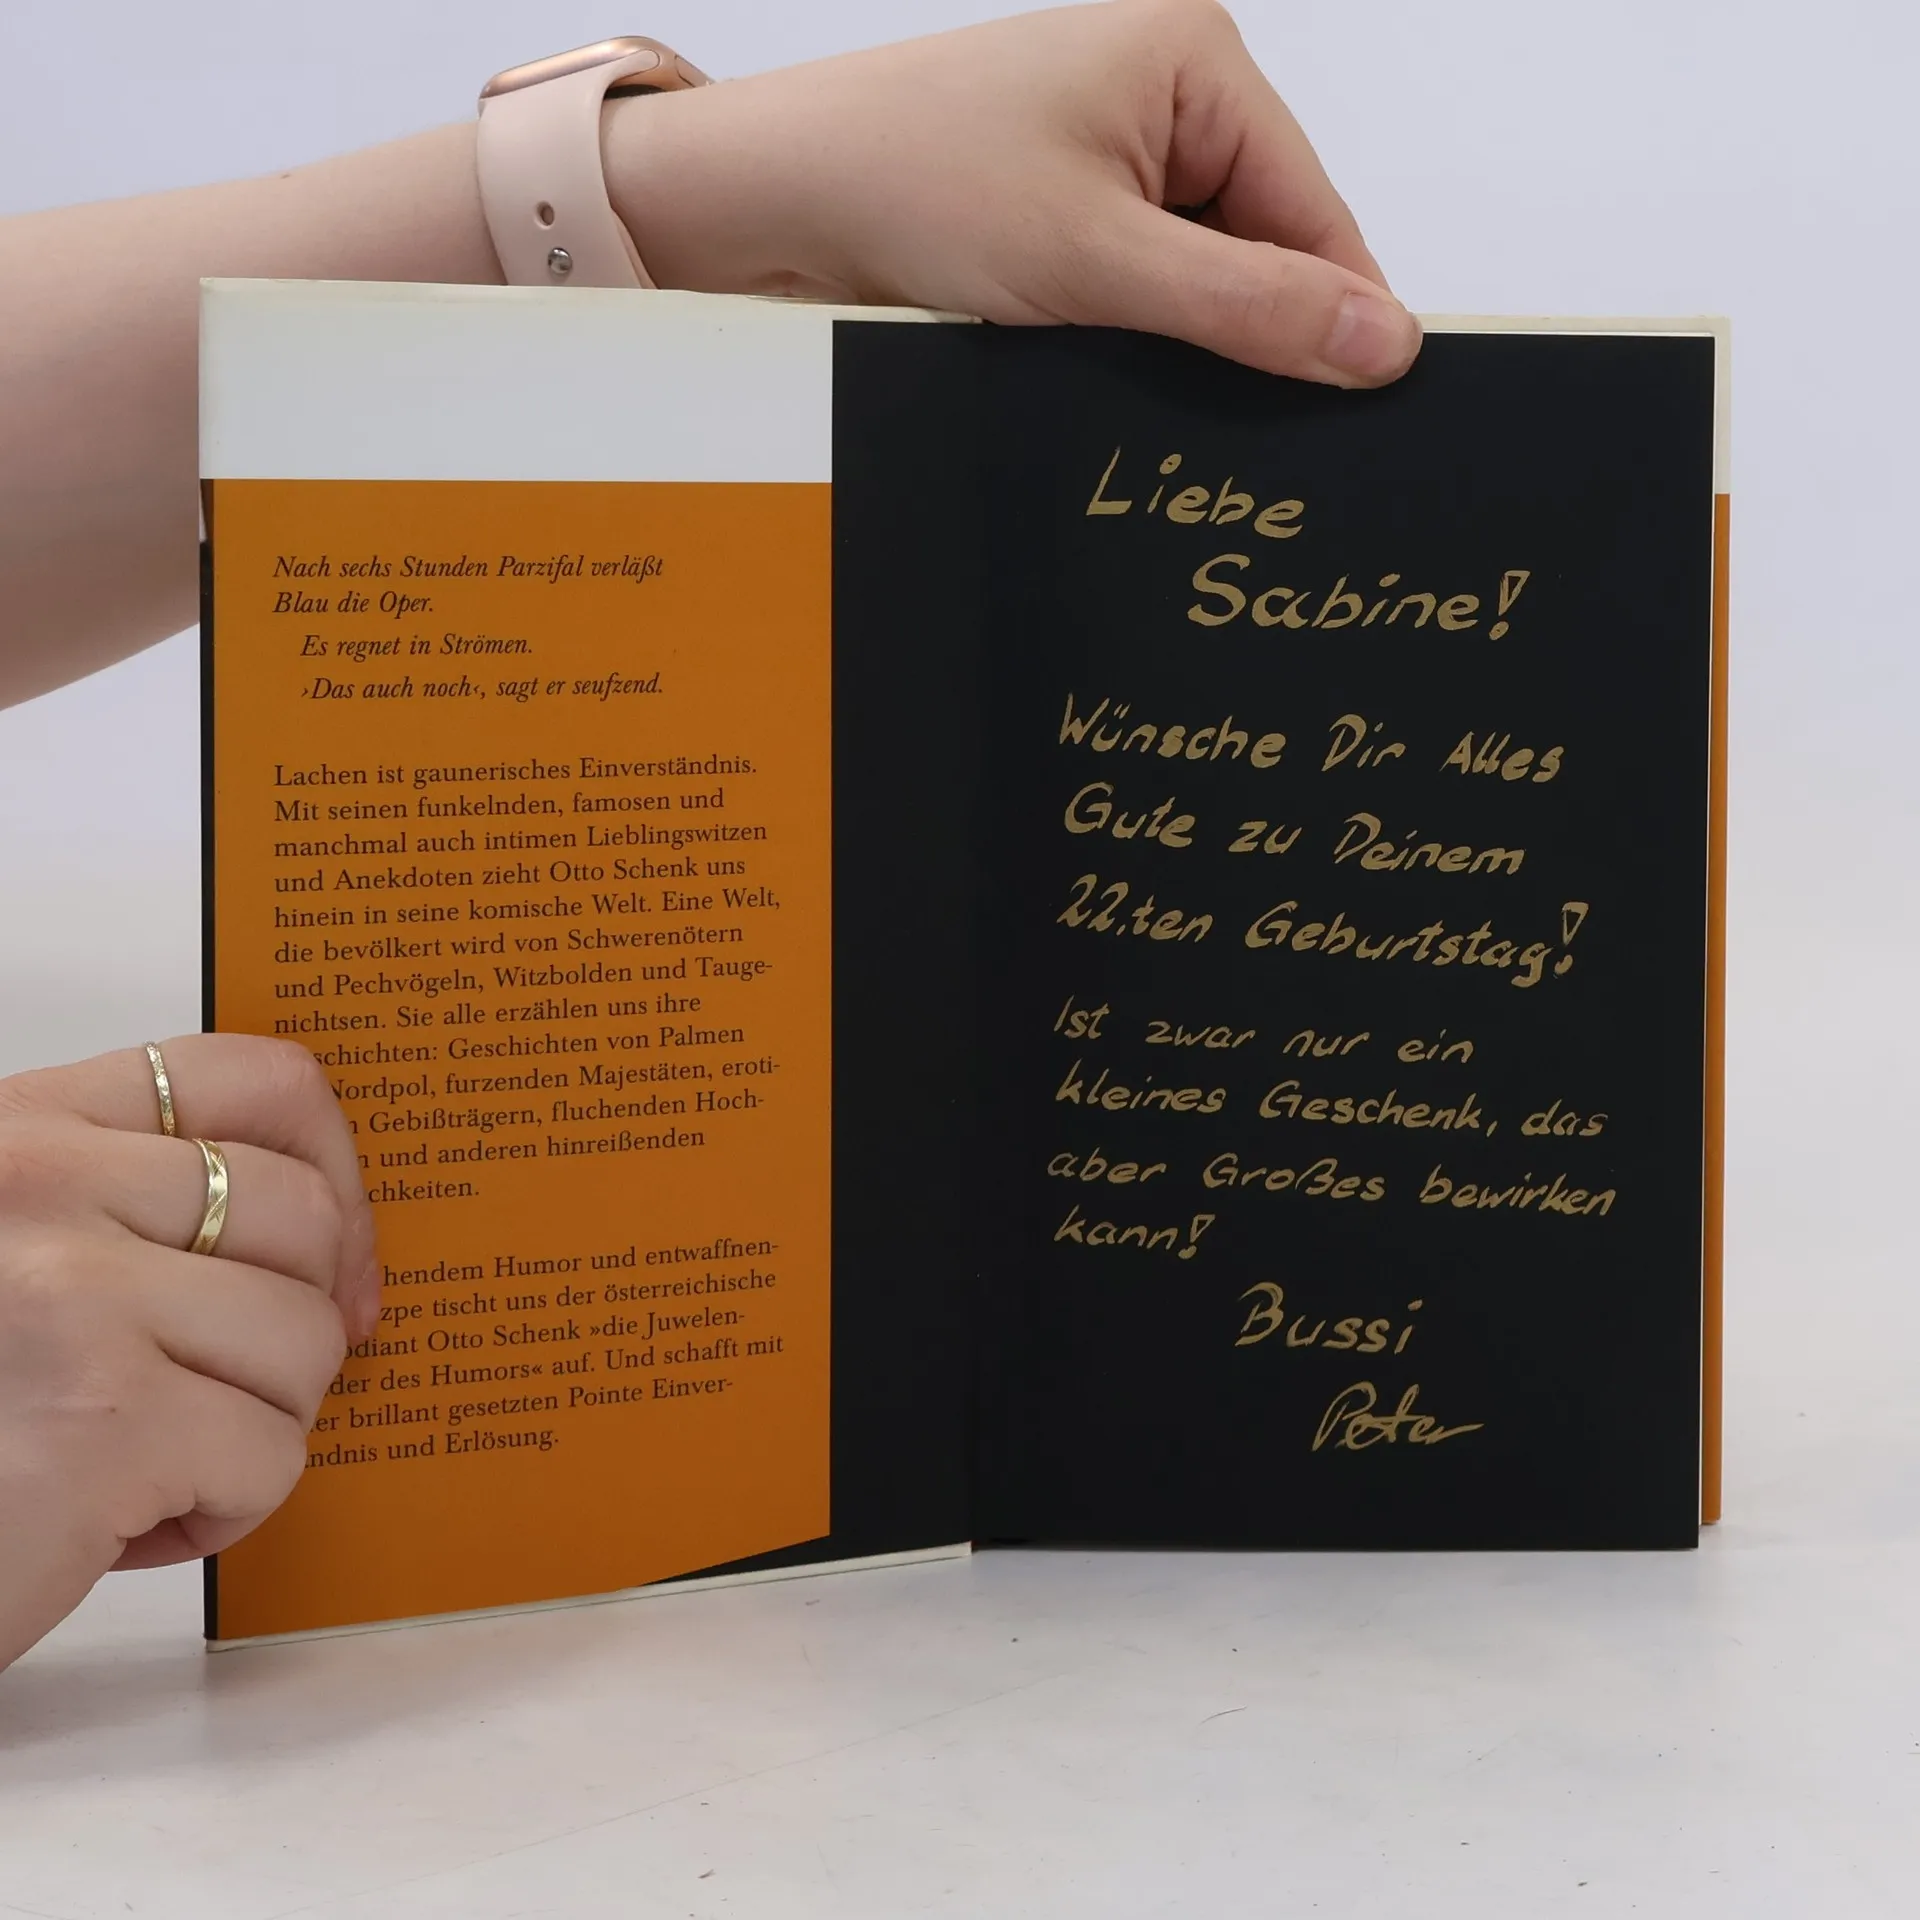 Nach sechs Stunden Parzifal verläßt
Blau die Oper.
Es regnet in Strömen.
›Das auch noch‹, sagt er seufzend.
Lachen ist gaunerisches Einverständnis.
Mit seinen funkelnden, famosen und
manchmal auch intimen Lieblingswitzen
und Anekdoten zieht Otto Schenk uns
hinein in seine komische Welt. Eine Welt,
die bevölkert wird von Schwerenötern
und Pechvögeln, Witzbolden und Tauge-
nichtsen. Sie alle erzählen uns ihre
schichten: Geschichten von Palmen
Nordpol, furzenden Majestäten, eroti-
Gebißträgern, fluchenden Hoch-
und anderen hinreißenden
chkeiten.
hendem Humor und entwaffnen-
zpe tischt uns der österreichische
odiant Otto Schenk »die Juwelen-
der des Humors« auf. Und schafft mit
er brillant gesetzten Pointe Einver-
ndnis und Erlösung.
Liebe
Sabine!
Wünsche Dir Alles
Gute zu Deinem
22.ten Geburtstag!
Ist zwar nur ein
kleines Geschenk, das
aber Großes bewirken
kann!
Bussi
Peter